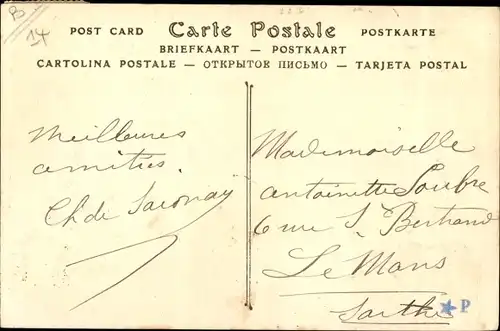 B
14
POST CARD Carte Postale POSTKARTE
BRIEFKAART — POSTKAART
CARTOLINA POSTALE — ОТКРЫТОЕ ПИСЬМО — TARJETA POSTAL
Meilleures
amitiés.
Ch de
Mademoiselle
Antoinette Loubre
6 rue S. Bertrand
Le Mans
Sarthe
P